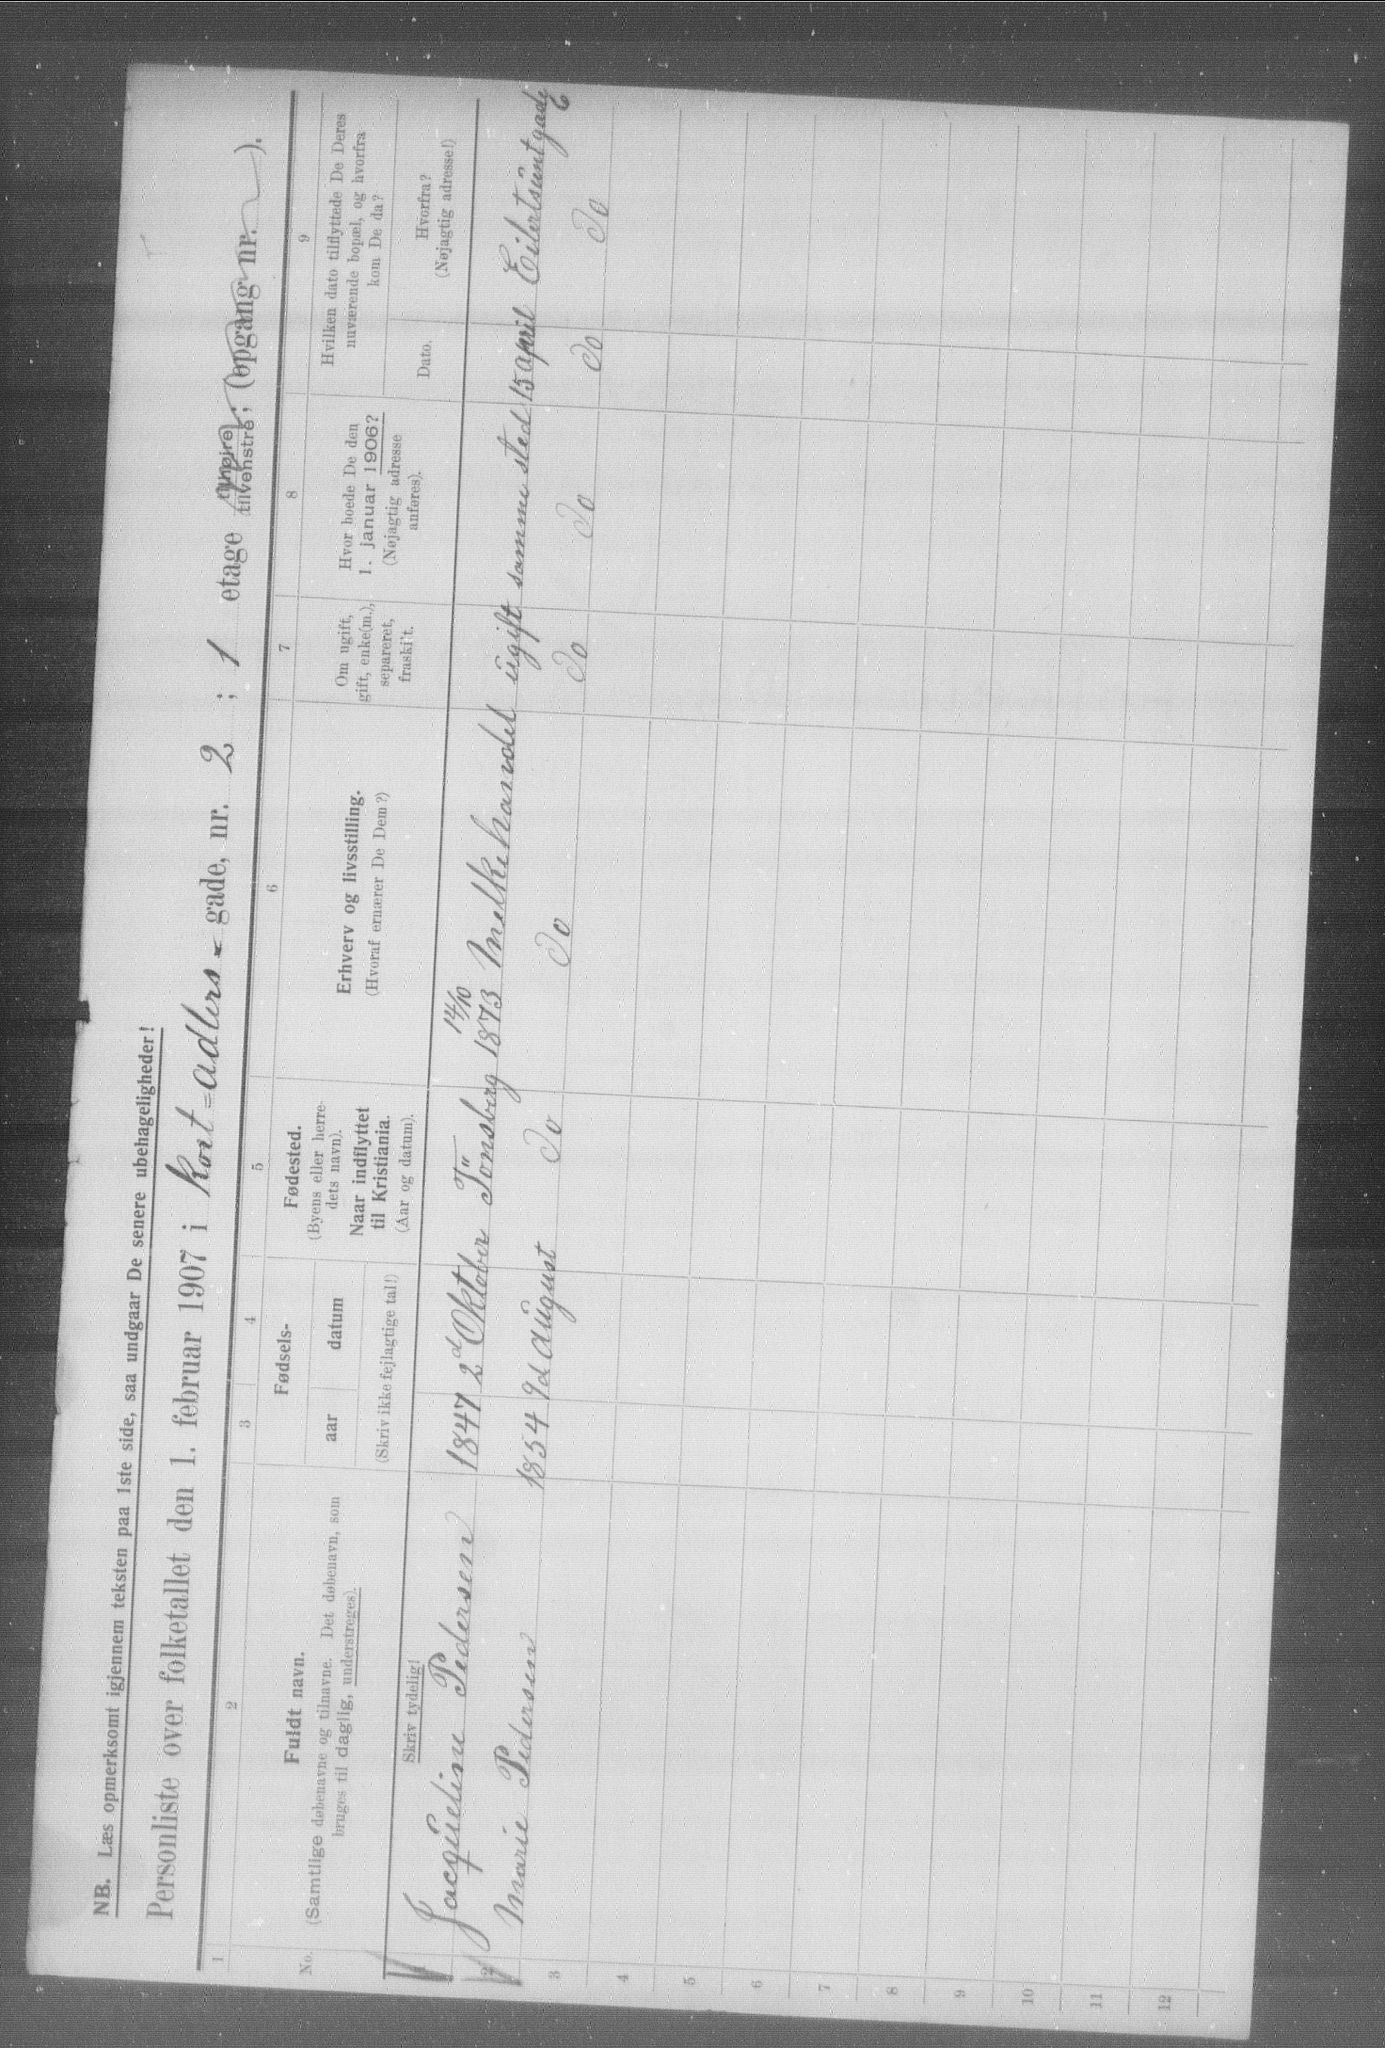 NB. Læs opmerksomt igjennem teksten paa 1ste side, saa undgaar De senere ubehageligheder!
Personliste over folketallet den 1. februar 1907 i Kort=adlers - gade, nr. 2 ; 1 etage tilhøire tilvenstre; (opgang nr. ).
1 2 3 4 5 6 7 8 9
No.
Fuldt navn.
(Samtlige døbenavne og tilnavne. Det døbenavn, som
bruges til daglig, understreges).
Skriv tydelig!
Fødsels-
aar datum
(Skriv ikke fejlagtige tal!)
Fødested.
(Byens eller herre-
dets navn).
Naar indflyttet
til Kristiania.
(Aar og datum).
Erhverv og livsstilling.
(Hvoraf ernærer De Dem?)
Om ugift,
gift, enke(m.),
separeret,
fraskilt.
Hvor boede De den
1. januar 1906?
(Nøjagtig adresse
anføres).
Hvilken dato tilflyttede De Deres
nuværende bopæl, og hvorfra
kom De da?
Dato.
Hvorfra?
(Nøjagtig adresse!)
1 Jacqueline Pedersen 1847 2d Oktober Tönsberg 14/10 1873 Melkehandel ugift samme sted 15 april Eilertsuntgade 6
2 Marie Pedersen 1854 9d august Do Do Do Do Do Do
3
4
5
6
7
8
9
10
11
12